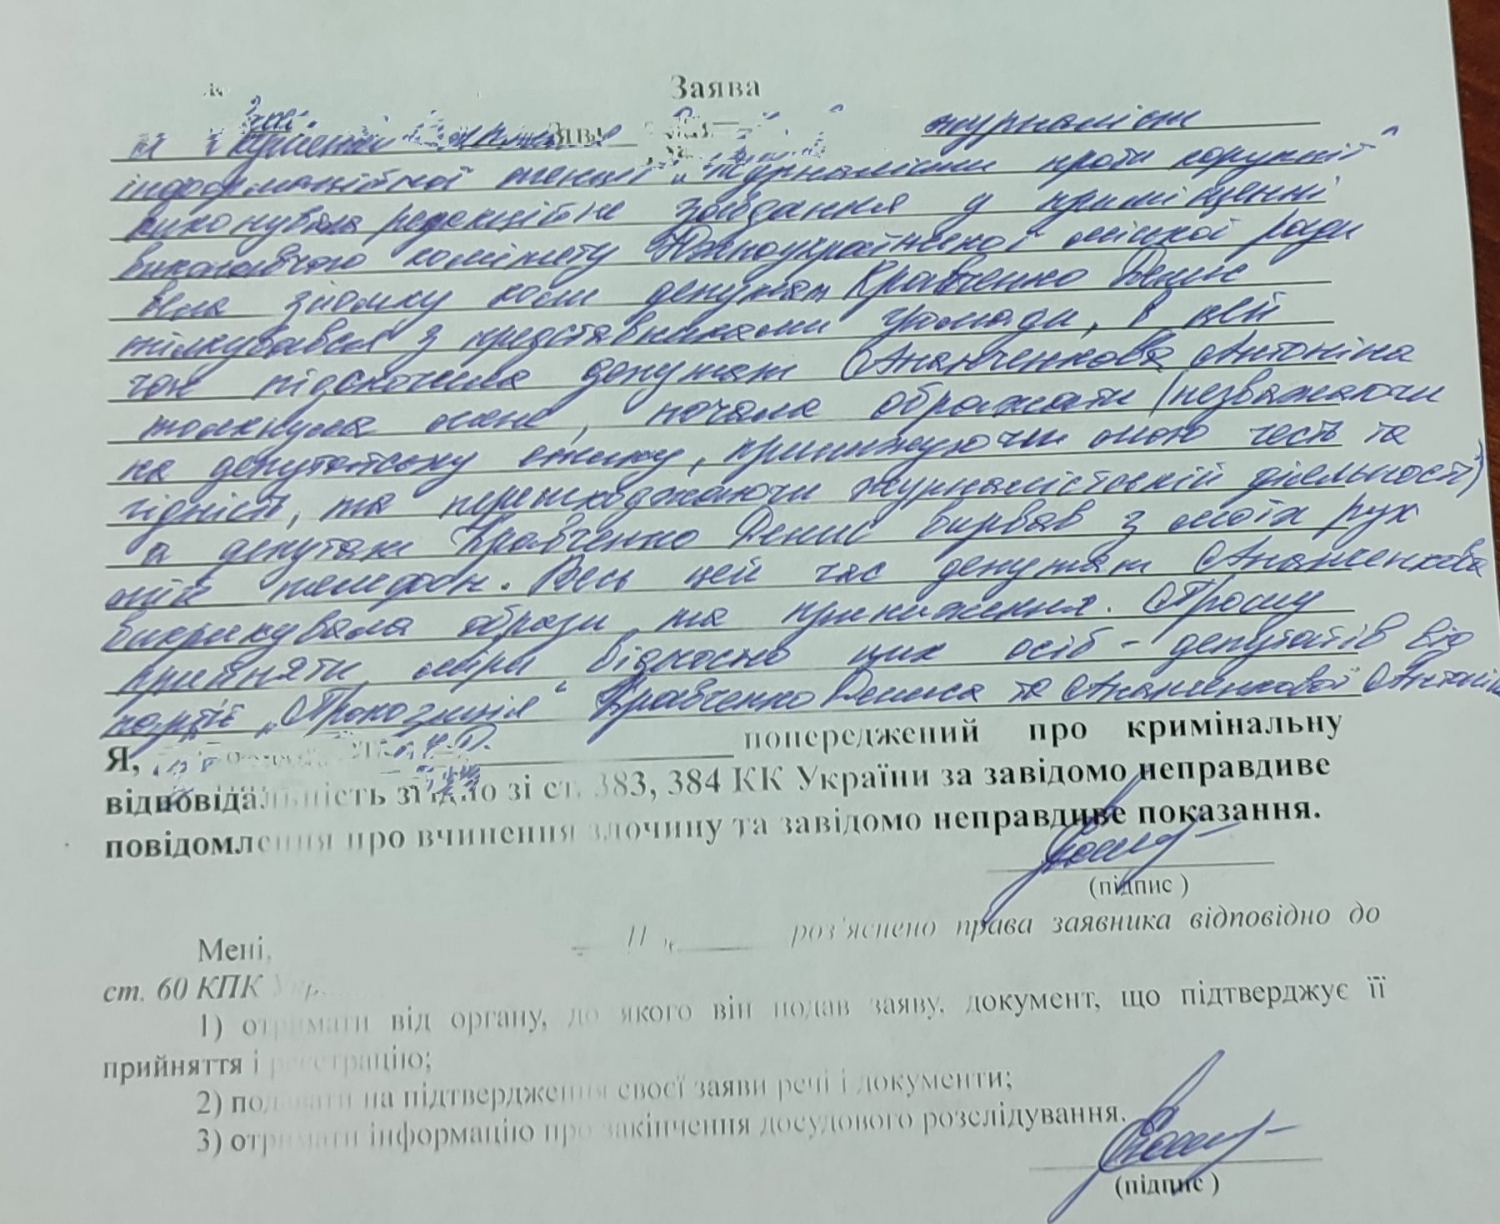 Заява
журналіст
інформаційної агенції "Журналісти проти корупції"
виконувала редакційне завдання у приміщенні
виконавчого комітету Южноукраїнської міської ради
вела зйомку коли депутат Кравченко Денис
спілкувався з представниками громади, в цей
час підскочила депутат Ананченкова Антоніна
толкнула мене, почала ображати (незважаючи
на депутатську етику, принижуючи мою честь та
гідність, та перешкоджаючи журналістській діяльності)
а депутат Кравченко Денис вирвав з моїх рук
мій телефон. Весь цей час депутат Ананченкова
викрикувала образи та приниження. Прошу
прийняти міри відносно цих осіб - депутатів від
партії "Пропозиція" Кравченко Дениса та Ананченкової Антоніни
Я, попереджений про кримінальну
відповідальність згідно зі ст. 383, 384 КК України за завідомо неправдиве
повідомлення про вчинення злочину та завідомо неправдиве показання.
(підпис )
Мені, роз'яснено права заявника відповідно до
ст. 60 КПК
1) отримати від органу, до якого він подав заяву, документ, що підтверджує її
прийняття і реєстрацію;
2) подавати на підтвердження своєї заяви речі і документи;
3) отримати інформацію про закінчення досудового розслідування.
(підпис )